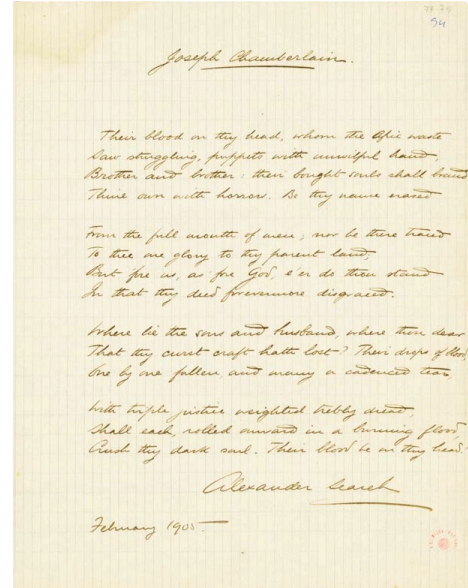 94
Joseph Chamberlain.
Their blood on thy head, whom the Afric waste
Saw struggling, puppets with unwilful hand,
Brother and brother: their bought souls shall brand
Thine own with horror. Be thy name erased
From the full mouth of men; nor be there traced
To thee one glory to thy parent land,
But fore us, as fore God, e'er do thou stand
In that thy deed forevermore disgraced.
Where lie the sons and husband, where those dear
That thy curst craft hath lost? Their drops of blood,
One by one fallen, and many a cadenced tear,
With triple justice weighted trebly dread,
Shall each, rolled onward in a burning flood,
Crush thy dark soul. Their blood be on thy head!
Alexander Search
February 1905.